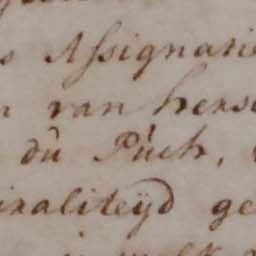 s Assignatie
n van herse
du Puch,
iraliteÿd ge